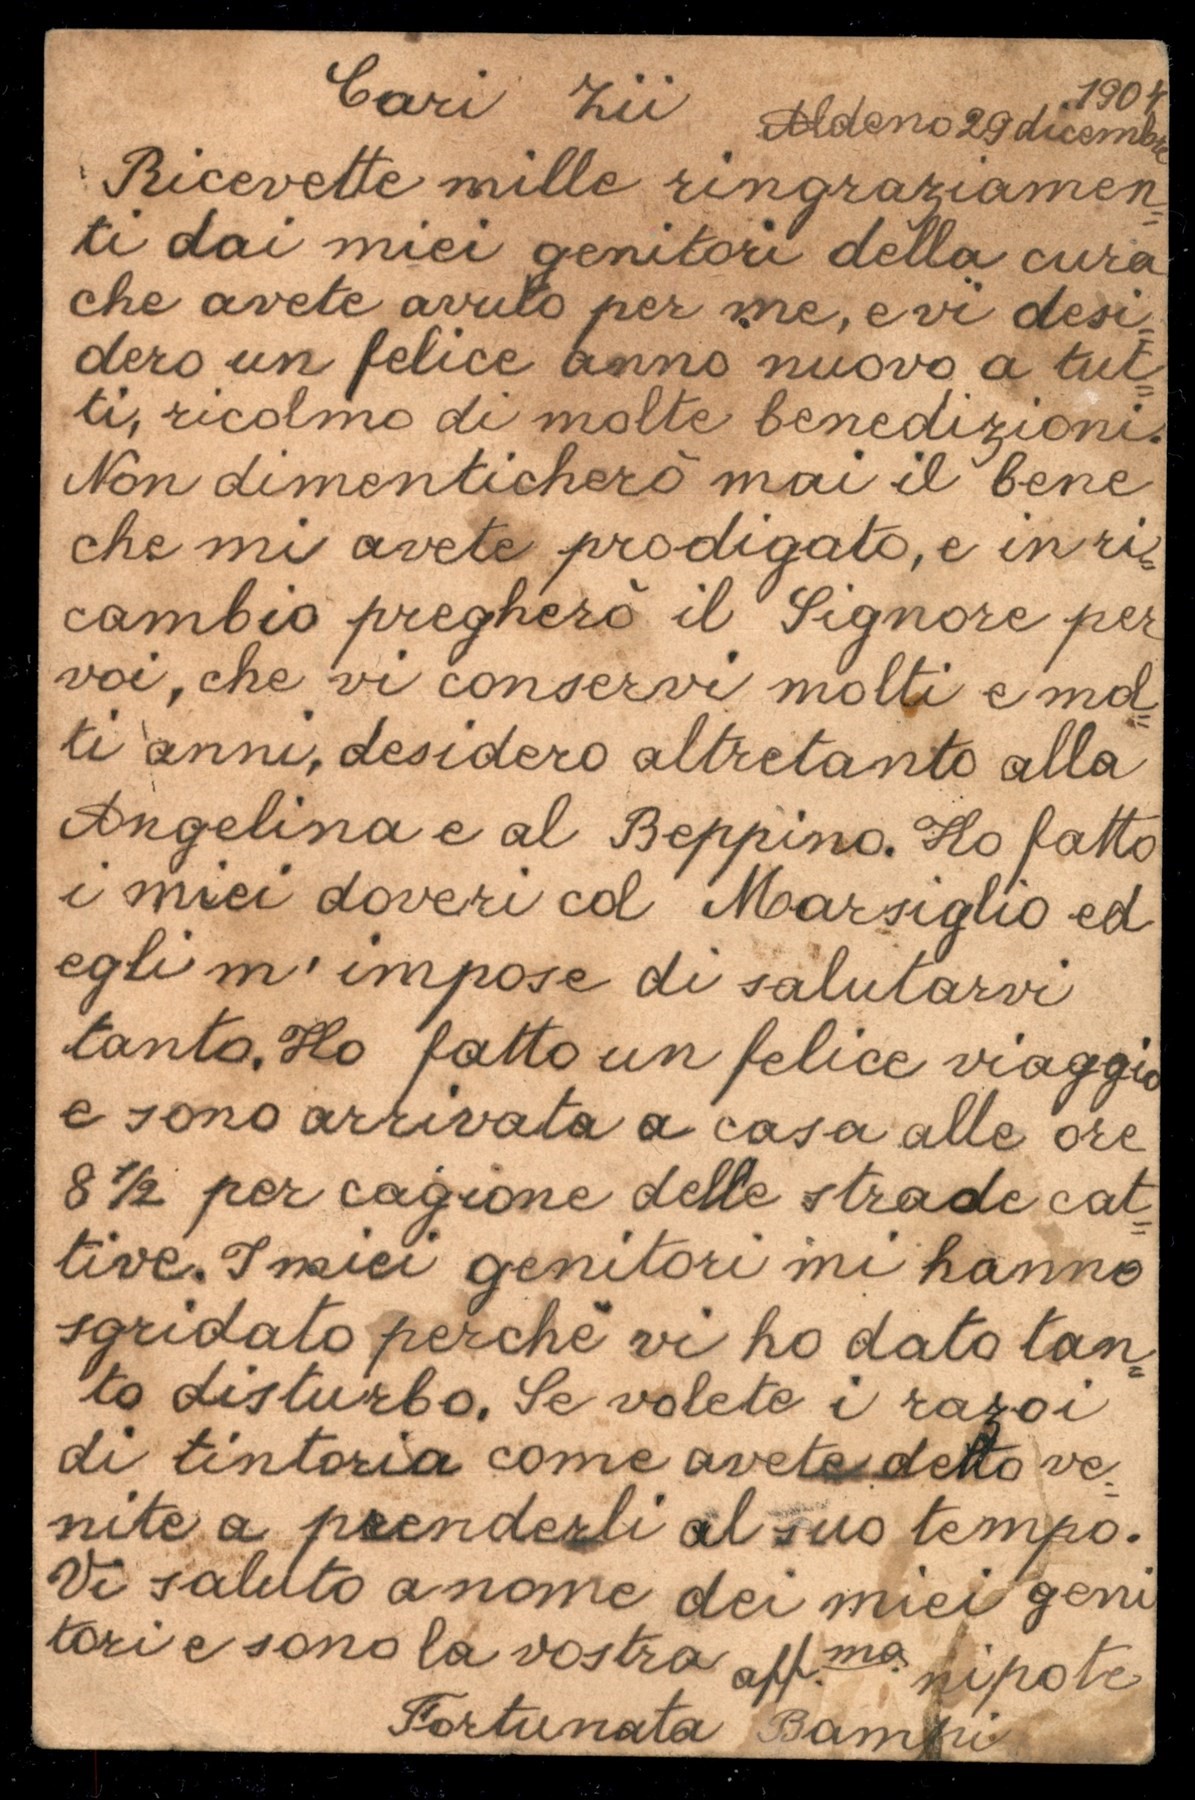 Cari Zii
1904
Aldeno 29 dicembre
Ricevette mille ringraziamen=
ti dai miei genitori della cura
che avete avuto per me, e vi desi=
dero un felice anno nuovo a tut=
ti, ricolmo di molte benedizioni.
Non dimenticherò mai il bene
che mi avete prodigato, e in ri=
cambio pregherò il Signore per
voi, che vi conservi molti e mol=
ti anni, desidero altretanto alla
Angelina e al Beppino. Ho fatto
i miei doveri col Marsiglio ed
egli m' impose di salutarvi
tanto. Ho fatto un felice viaggio
e sono arrivata a casa alle ore
8 1/2 per cagione delle strade cat=
tive. I miei genitori mi hanno
sgridato perchè vi ho dato tan=
to disturbo. Se volete i razoi
di tintoria come avete detto ve=
nite a prenderli al suo tempo.
Vi saluto a nome dei miei geni
tori e sono la vostra aff.ma nipote
Fortunata Bampi